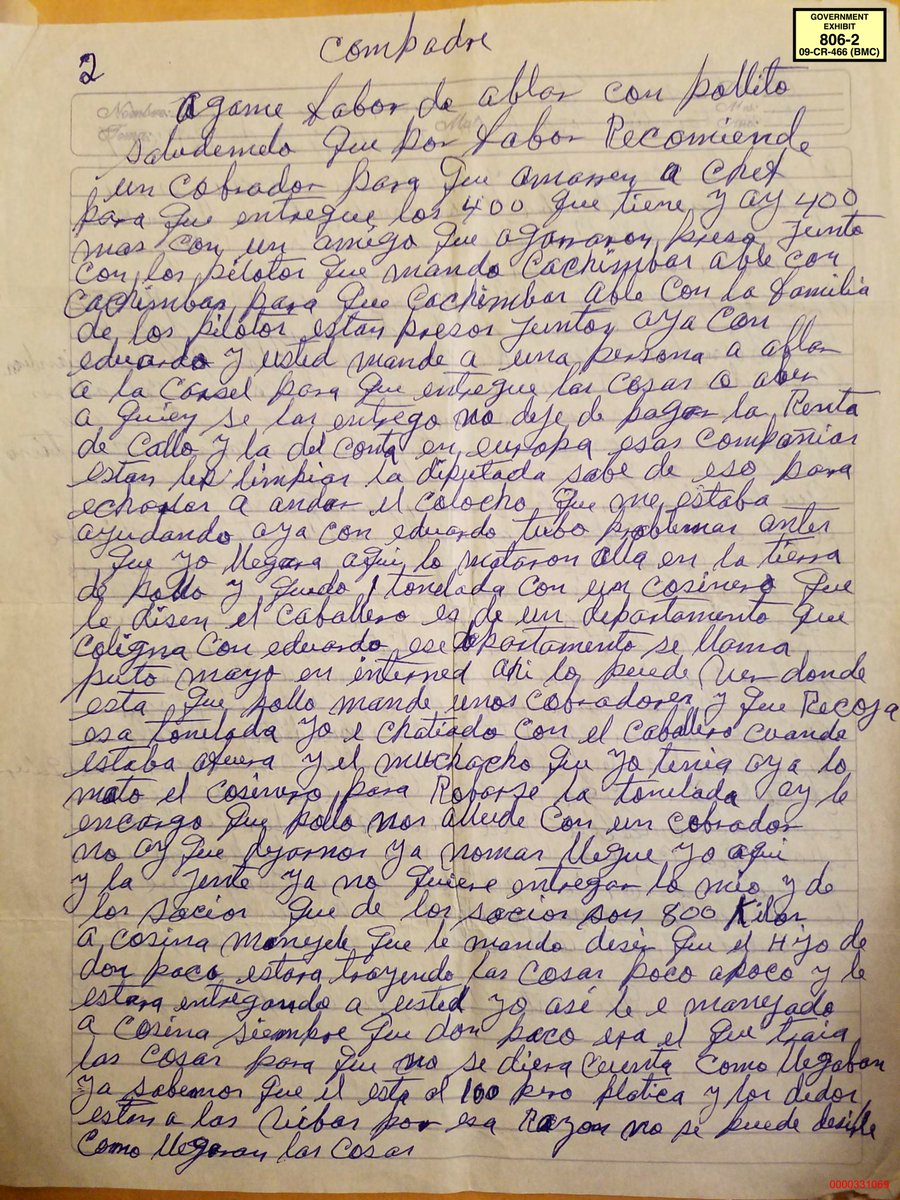 GOVERNMENT
EXHIBIT
806-2
09-CR-466 (BMC)
2
compadre
agame fabor de ablar con pollito
saludemelo que por fabor Recomiende
un cobrador para que amarren a chet
para que entregue los 400 que tiene y ay 400
mas con un amigo que agarraron preso junto
con los pilotos que mando cachimbas able con
cachimbas para que cachimbas able con la familia
de los pilotos estan presos juntos aya con
eduardo y usted mande a una persona a ablar
a la carsel para que entregue las cosas o aber
a quien se las entrego no deje de pagar la Renta
de callo y la del conta en europa esas compañias
estan limpias la diputada sabe de eso para
echarlas a andar el colocho que me estaba
ayudando aya con eduardo tubo problemas antes
que yo llegara aqui lo mataron alla en la tierra
de pollo y quedo 1 tonelada con un cosinero que
le disen el caballero es de un departamento que
coligna con eduardo ese departamento se llama
puto mayo en interned ahi lo puede ver donde
esta que pollo mande unos cobradores y que Recoja
esa tonelada yo e chatiado con el caballero cuando
estaba afuera y el muchacho que yo tenia aya lo
mato el cosinero para Robarse la tonelada ay le
encargo que pollo nos allude con un cobrador
no ay que dejarnos ya nomas llegue yo aqui
y la jente ya no quiere entregar lo mio y de
los socios que de los socios son 800 Kilos
a cosina manejele que le mando desir que el Hijo de
don paco estara trayendo las cosas poco apoco y le
estara entregando a usted yo asi le e manejado
a cosina siempre que don paco era el que traia
las cosas para que no se diera cuenta como llegaban
ya sabemos que el esta al 100 pero platica y los dedos
estan a las vibas por esa Razon no se puede desirle
como llegaran las cosas
0000331069